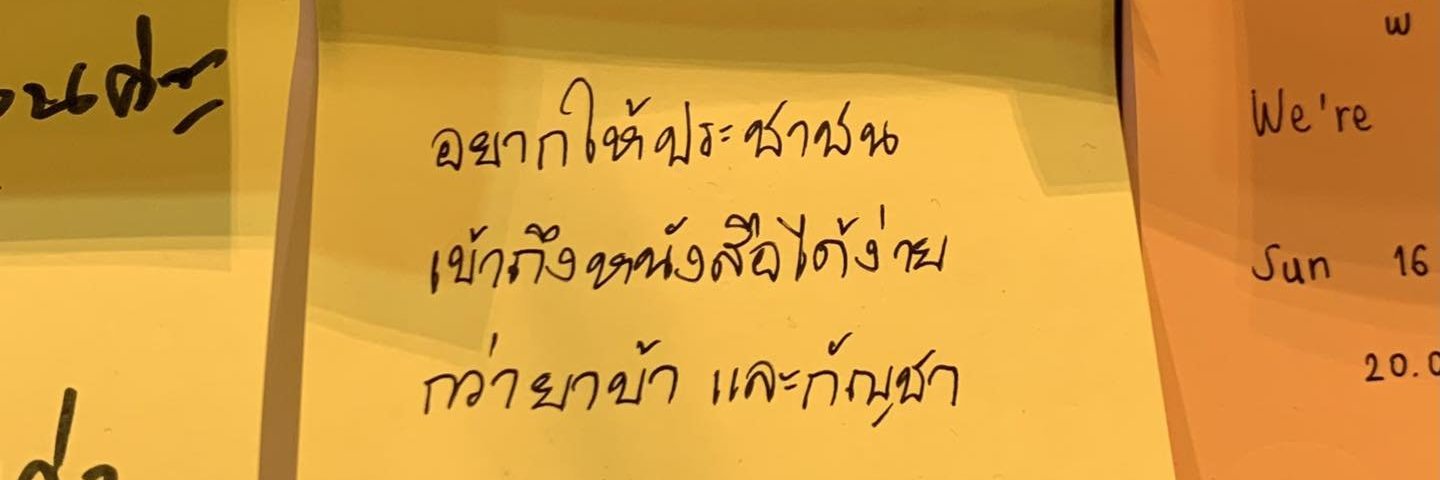 อยากให้ประชาชน
เข้าถึงหนังสือได้ง่าย
กว่ายาบ้า และกัญชา
We're
Sun 16
20.0